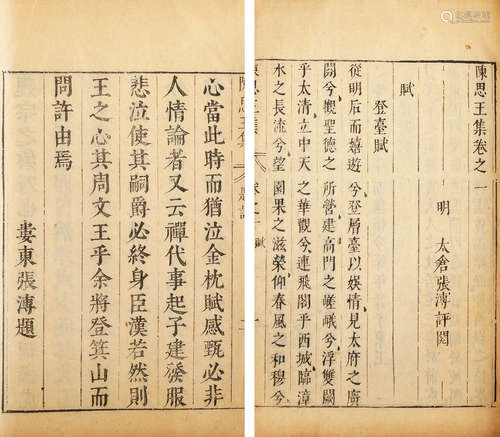 陳思王集卷之一
明 太倉張溥評閱
賦
登臺賦
從明后而嬉遊兮登層臺以娛情見太府之廣
開兮觀聖德之所營建高門之嵯峨兮浮雙闕
乎太清立中天之華觀兮連飛閣乎西城臨漳
水之長流兮望園果之滋榮仰春風之和穆兮
心當此時而猶泣金枕賦感甄必非
人情論者又云禪代事起子建發服
悲泣使其嗣爵必終身臣漢若然則
王之心其周文王乎余將登箕山而
問許由焉
婁東張溥題